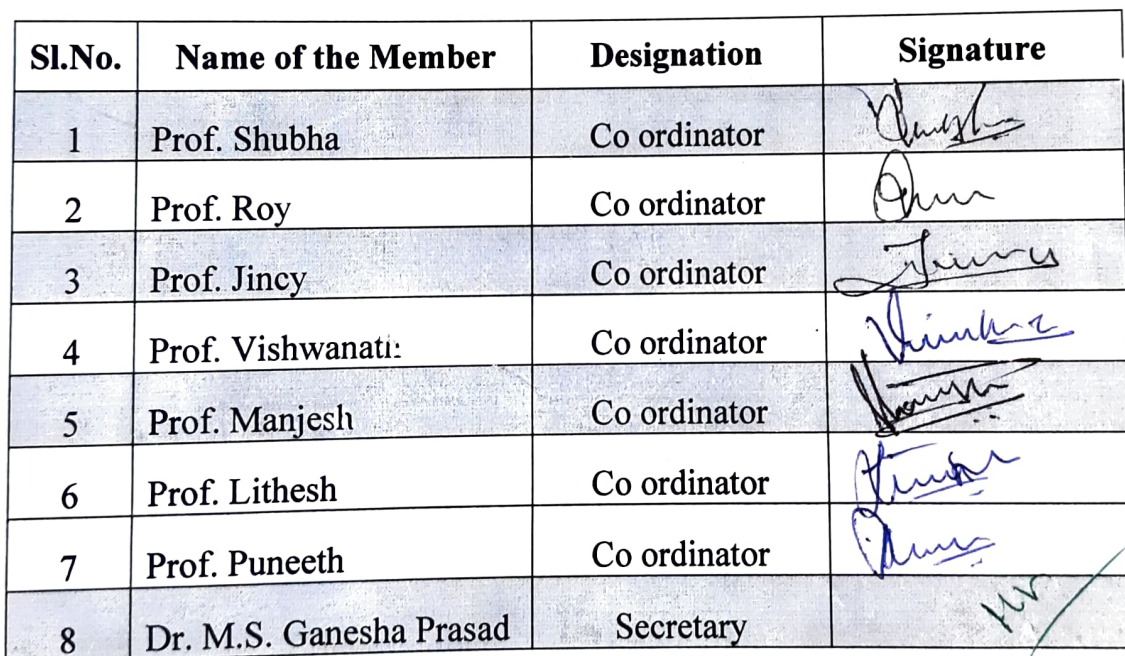 Sl.No. Name of the Member Designation Signature
1 Prof. Shubha Co ordinator
2 Prof. Roy Co ordinator
3 Prof. Jincy Co ordinator
4 Prof. Co ordinator
5 Prof. Manjesh Co ordinator
6 Prof. Lithesh Co ordinator
7 Prof. Puneeth Co ordinator
8 Dr. M.S. Ganesha Prasad Secretary